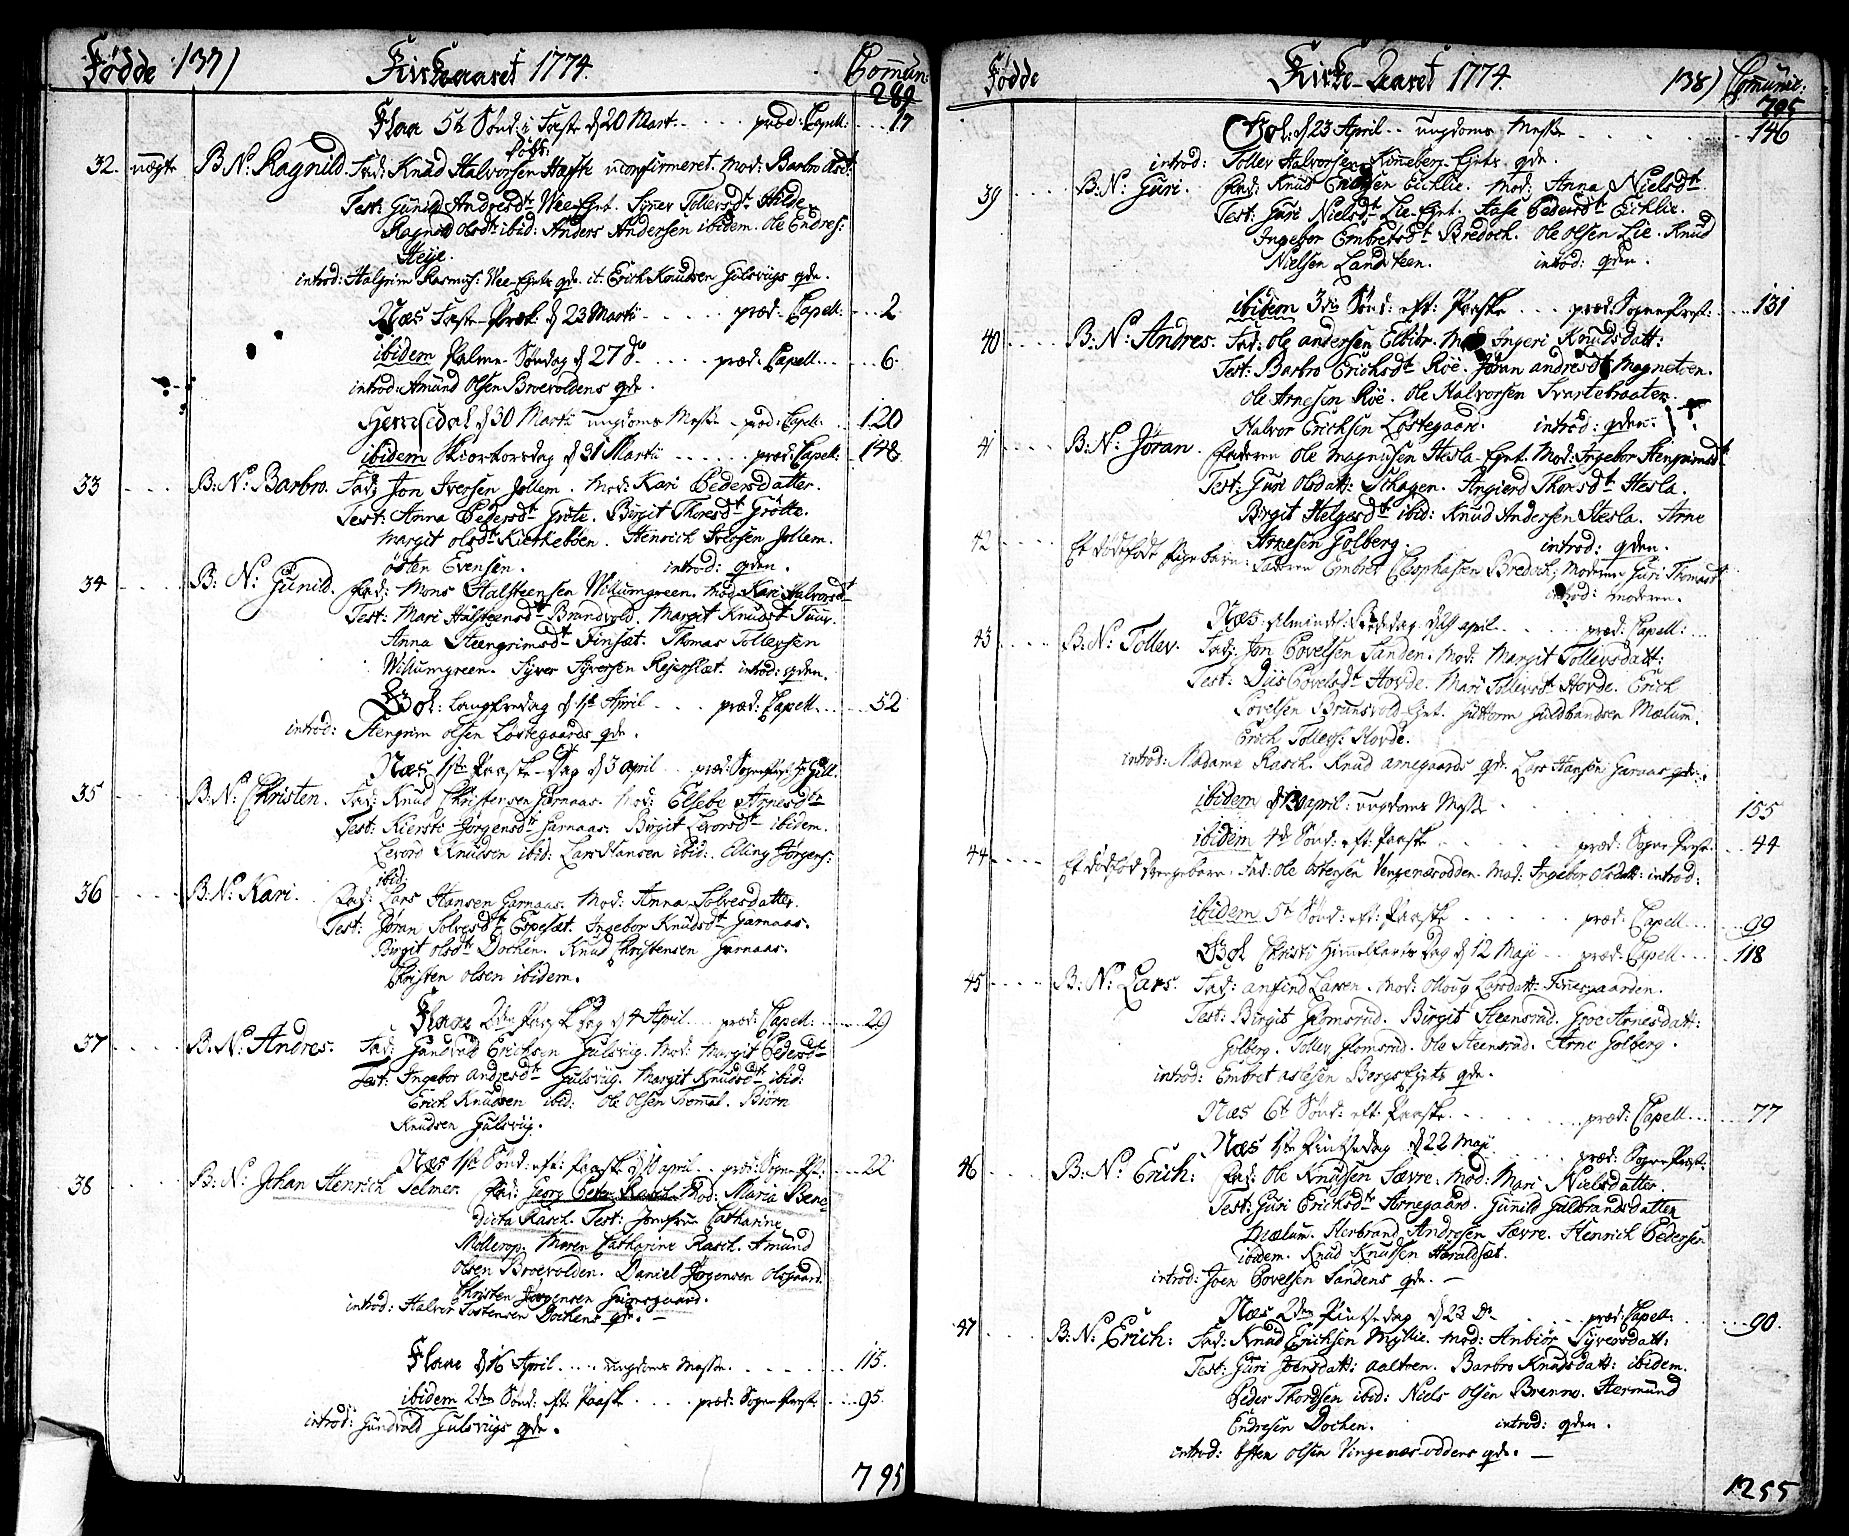 Fødde 137) Kirkeaaret 1774. Commun:
289
Flaa 5te Sønd: i Faste d 20 Mart. . . . præd: Capell: . . 17
32. uægte B: N: Ragnild. Fad: Knud Halvorsen Hafte uconfirmeret. Mod: Barbro Olsdt
Test: Gunild Andresdt Wee-Ejet. Synev Tollevsdt Hilde.
Ragnild Olsdt ibid: Anders Andersen ibidem. Ole Endres:
Steje.
introd: Halgrim Rasmus: Wee-Ejets qde. it. Erich Knudsen Gulsviigs qde.
Næs Faste-Præk: d 23 Marti . . . . . præd: Capell: . . . 2
ibidem Palme-Søndag d 27 do . . . . præd: Capell . . . . 6.
introd: Amund Olsen Broevoldens qde.
Hemsedal d 30 Marti ungdoms Messe - præd: Capell: 120
ibidem Skiærtorsdag d 31 Marti . . . . . præd: Capell: 148
33 . . . B: N: Barbro. Fad: Jon Iversen Jollem. Mod: Kari Pedersdatter.
Test: Anna Pedersdt Grøte. Birgit Thoresdt Grøtte.
Margit Olsdt Kirkebøen. Henrich Iversen Jollem.
østen Evensen. introd: qden.
34 . . . B: N: Gunild. Fad: Mons Halsteensen Willumgreen. Mod: Kari Halvorsdt
Test: Mari Halsteensdt Brandvold. Margit Knudsdt Tuuv.
Anna Steengrimsdt Finsæt. Thomas Tollevsen
Willumgreen. Syver Syversen Rejerslæt. introd: qden.
Gol: Langfredag d 1ste April . . . præd: Capell . . . . 52
introd: Stengrim Olsen Løstegaards qde.
Næs 1ste Paaske-Dag d 3 april . . . præd: SognePræst
35 . . . B: N: Christen. Fad: Knud Christensen Garnaas. Mod: Elsebe Arnesdtr
Test: Kiersti Jørgensdt Garnaas. Birgit Levorsdt ibidem.
Levord Knudsen ibid: Lars Hansen ibid: Elling Jørgens:
ibid:
36 . . . B: N: Kari. Fad: Lars Hansen Garnaas. Mod: Anna Solvesdatter.
Test: Jøran Solvesdt Espesæt. Ingebor Knudsdt Garnaas.
Birgit Olsdt Dochen. Knud Christensen Garnaas.
Christen Olsen ibidem.
Flaae 2den Paaske Dag d 4 April . . . præd: Capell: . . . . 29
37 . . . B: N: Andres. Fad: Gundvold Erichsen Gulsvig. Mod: Margit Pedersdt
Test: Ingebor Andresdt Gulsviig. Margit Knudsdt ibid:
Erich Knudsen ibid: Ole Olsen Trommal. Biørn
Knudsen Gulsviig.
Næs 1ste Sønd: eft: Paaske d 10 april . . præd: Sogne Pst: . . . 22
38 . . . B: N: Johan Henrich Selmer. Fad: Georg Peter Rasch. Mod: Maria Bene
dicta Rasch. Test: Jomfrue Catharine
Møllerop. Maren Catharine Rasch. Amund
Olsen Broevolden. Daniel Jørgensen Olsgaard.
Christen Jørgensen
introd: Halvor Tostensen Dochens qde.
Flaae d 16 April . . . . . ungdoms Messe. . . . . . . 115.
ibidem 2den Sønd: eft: Paaske . . . . præd: Sogne Præst: . . . 95.
introd: Gundvold Gulsviigs qde.
795
Fødde Kirke-Aaret 1774. 138) Communic:
795
Gol: d 23 April . . ungdoms Messe . . . . . . 146
introd: Tollev Halvorsen Kinneberg-Ejets qde.
39 . . . B: N: Guri. Fad: Knud Erichsen Eichlie. Mod: Anna Nielsdtr
Test: Guri Nielsdt Lie-Ejet. Aase Pedersdt Eichlie.
Ingebor Embretsdt Bredoch. Ole Olsen Lie. Knud
Nielsen Landsteen. introd: qden.
ibidem 3die Sønd: eft: Paaske . . . præd: SognePræst: . . . 131
40 . . . B: N: Andres. Fad: Ole Andersen Eltbør. Mod: Ingeri Knudsdatt:
Test: Barbro Erichsdt Røe. Jøran Andresdt Magneteen.
Ole Arnesen Røe. Ole Halvorsen Svartebraaten.
Halvor Erichsen Løstegaard. introd: qden.
41 . . . B: N: Jøran. Faderen Ole Magnusen Hesla-Ejet. Mod: Ingebor Stengrimsdt
Test: Guri Olsdatt: Schagen. Angierd Thoresdt Hesla.
Birgit Helgesdt ibid: Knud Andersen Hesla. Arne
Arnesen Golberg. introd: qden.
42 Et dødfødt Pigebarn: Faderen Embret Bredoch; Moderen Guri Thomasdt
introd: Moderen.
Næs . . . april . . . . . præd: Capell: . . .
43 . . . B: N: Tollev. Fad: Jon Povelsen Sanden. Mod: Margit Tollevsdatt:
Test: Diis Povelsdt Hovde. Mari Tollevsdt Hovde. Erich
Povelsen Brunsvold-Ejet. Guttorm Guldbrandsen Mælum.
Erich Tollevs: Hovde.
introd: Madame Rasch. Knud Arnegaards qde. Lars Hansen Garnaas qde.
ibidem april: ungdoms Messe . . . 155
ibidem 4de Sønd: eft: Paaske . . . . . . . præd: Sogne Præst: . . 44
44 . . . Et dødfødt Drengebarn. Fad: Ole Østensen Vengenæsodden. Mod: Ingebor Olsdatt: introd:
ibidem 5te Sønd: eft: Paaske . . . . . . præd: Capell . . . . 99
Gol Christi Himmelfarts Dag d 12 Maji . . . præd: Capell . . . . 118
45 . . . B: N: Lars. Fad: Anfind Larsen. Mod: Larsdatt. Finnesgaarden.
Test: Birgit Glomsrud. Birgit Steensrud. Groe Arnesdatt:
Golberg. Tollev Glomsrud. Ole Steensrud. Arne Golberg.
introd: Embret Aslesen Bergs Ejets qde.
Næs 6te Sønd: eft: Paaske. . . . . . . præd: Capell . . . . 77
Næs 1ste Pintsedag d 22 Maji . . . præd: Sogne Præst
46 . . . B: N: Erich: Fad: Ole Knudsen Sævre. Mod: Mari Nielsdatter.
Test: Guri Erichsdtr Arnegaard. Gunild Gulbrandsdatter
Mælum. Herbrand Andresen Sævre. Henrich Pedersen
ibidem. Knud Knudsen Haraldsæt.
introd: Joen Povelsen Sandens qde. —
Næs 2den Pintsedag d 23 do . . . . . præd: Capell: . . . . 90.
47 . . . B: N: Erich: Fad: Knud Erichsen Myhlie. Mod: Anbiør Syversdatt:
Test: Guri Joensdatt: Aaltren. Barbro Knudsdatt: ibidem.
Peder Thordsen ibid: Niels Olsen Brenno. Hermund
Endresen Dochen. introd: qden.
introd: Østen Olsen Vingenæs-oddens qde. —
1255